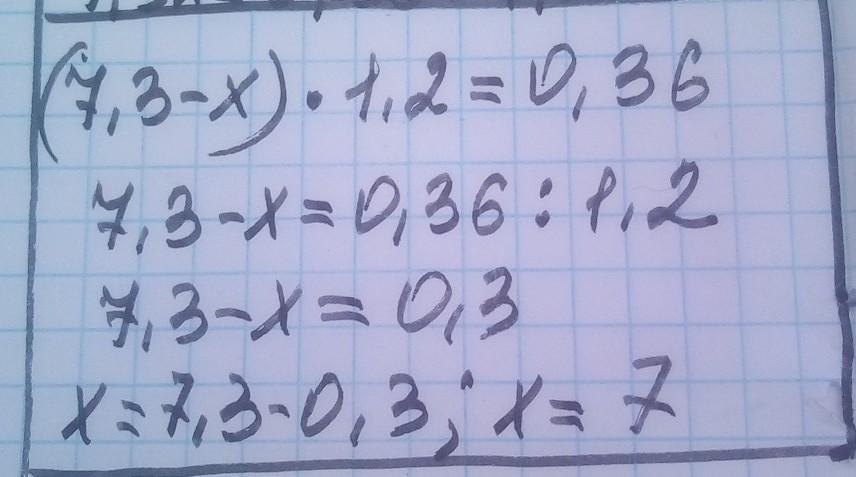 (7,3-x)·1,2=0,36
7,3-x=0,36:1,2
7,3-x=0,3
x=7,3-0,3; x=7